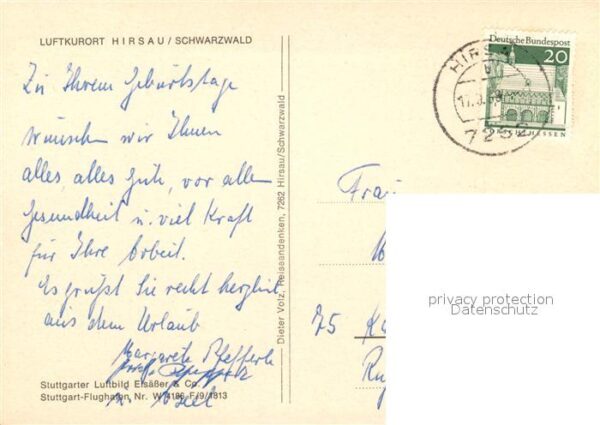 LUFTKURORT HIRSAU / SCHWARZWALD
Zu Ihrem Geburtstage
wünschen wir Ihnen
alles, alles Gute, vor allem
Gesundheit u. viel Kraft
für Ihre Arbeit.
Es grüßt Sie recht herzlich
aus dem Urlaub
Margarete Pfefferle
Stuttgarter Luftbild Elsäßer & Co.
Stuttgart-Flughafen, Nr. W 4186 F/9/1813
Dieter Volz, Reiseandenken, 7262 Hirsau/Schwarzwald
Deutsche Bundespost
20
HIRSAU
Frau
75
privacy protection
Datenschutz